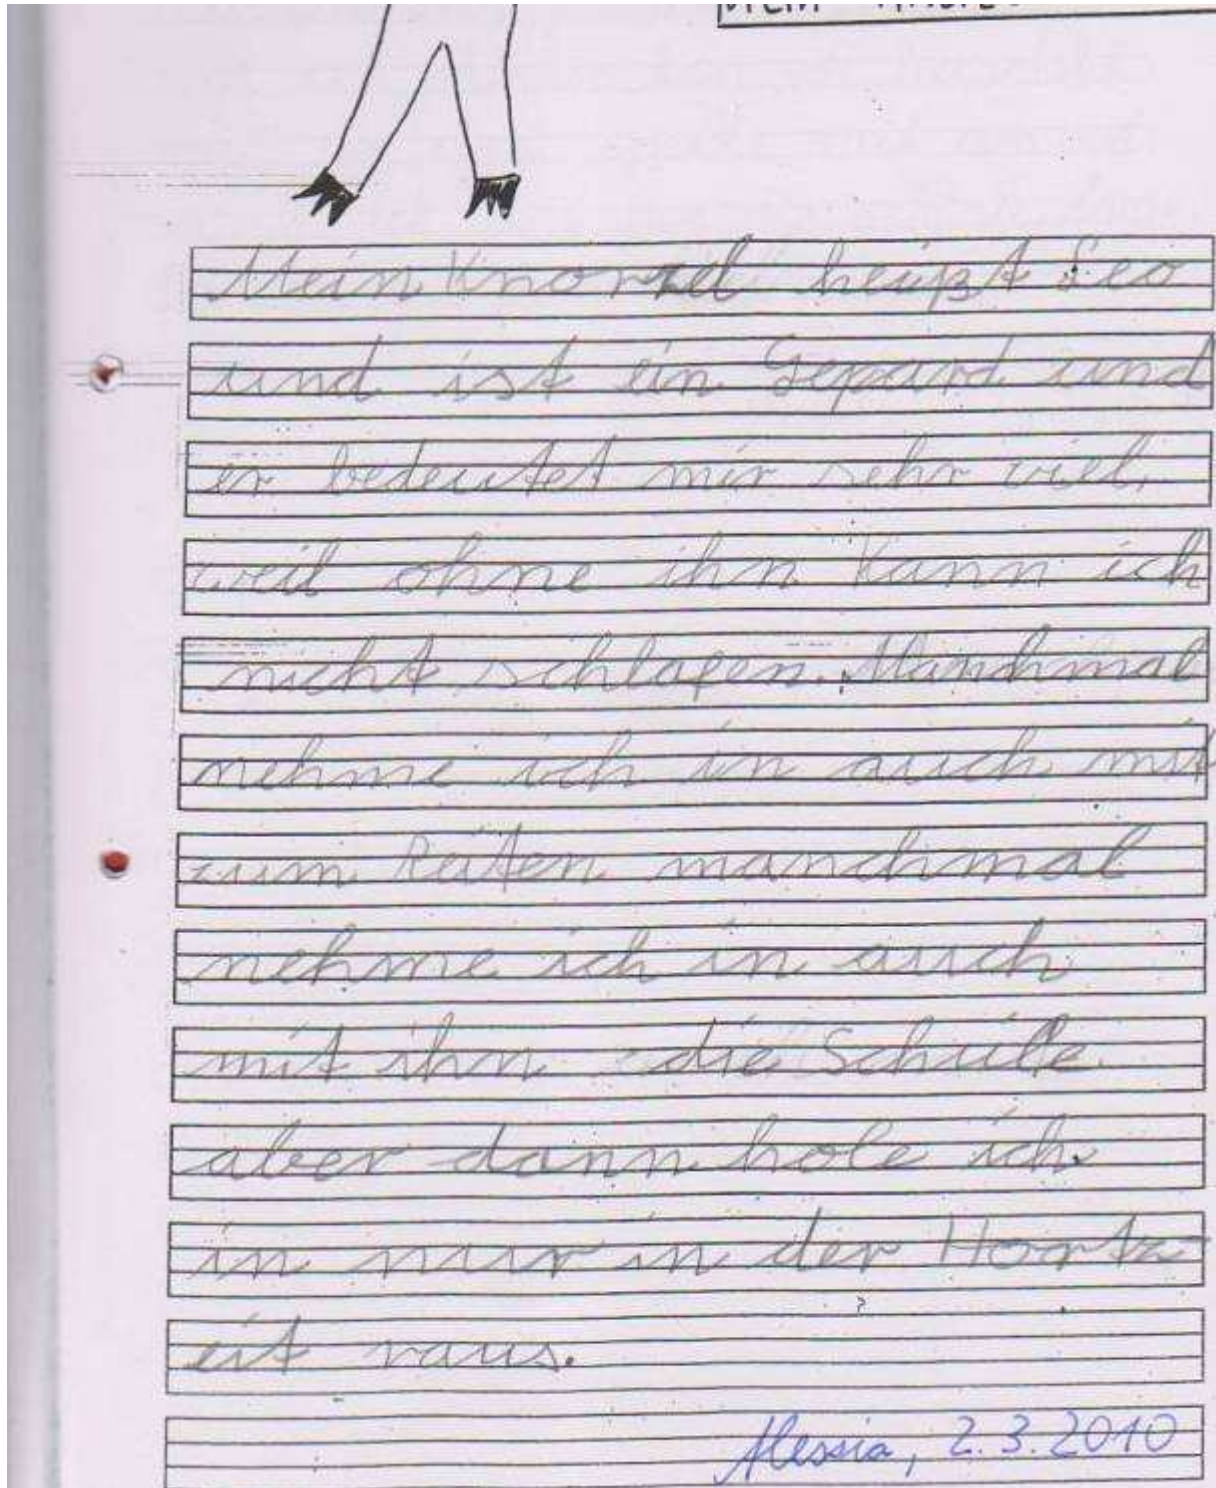 Mein
Mein Knorzel heißt Leo
und ist ein Gepard und
er bedeutet mir sehr viel,
weil ohne ihn kann ich
nicht schlafen. Manchmal
nehme ich in auch mit
zum Reiten manchmal
nehme ich in auch
mit ihn die Schule
aber dann hole ich
in nur in der Hortz-
eit raus.
Alessia, 2.3.2010